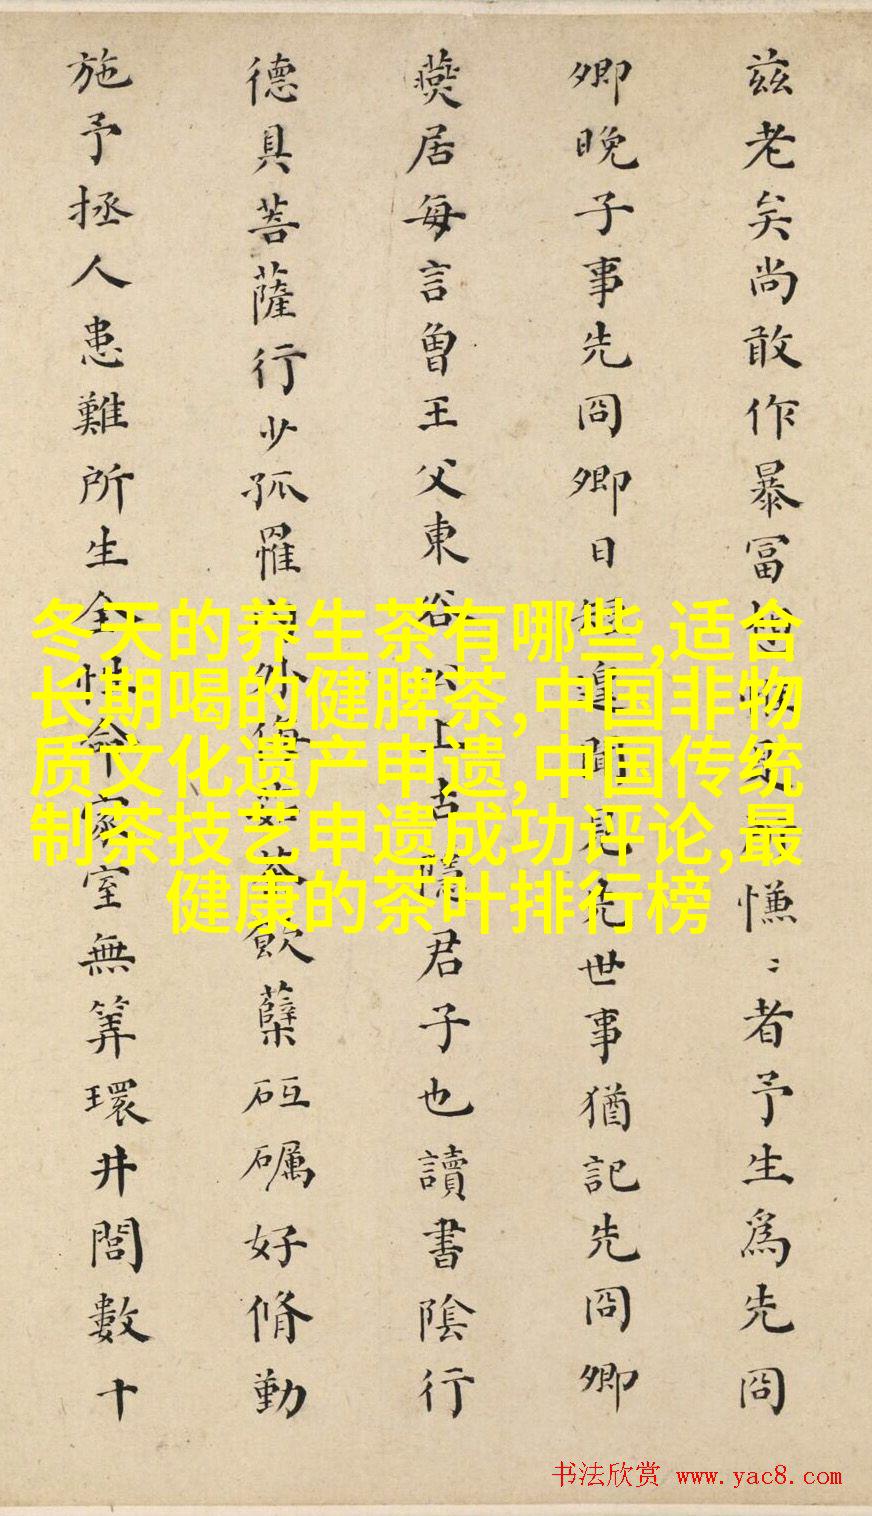 兹老矣尚敢作暴富慊〻者予生爲先冏
卿晚子事先冏卿日見先世事猶記先冏卿
燕居每言曽王父東谷公上古隱君子也讀書陰行
德具菩薩行少孤罹飲蘖砥礪好脩勤
施予拯人患難所生全性命家室無筭環井閭數十
冬天的养生茶有哪些,适合
长期喝的健脾茶,中国非物
质文化遗产申遗,中国传统
制茶技艺申遗成功评论,最
健康的茶叶排行榜
书法欣赏 www.yac8.com